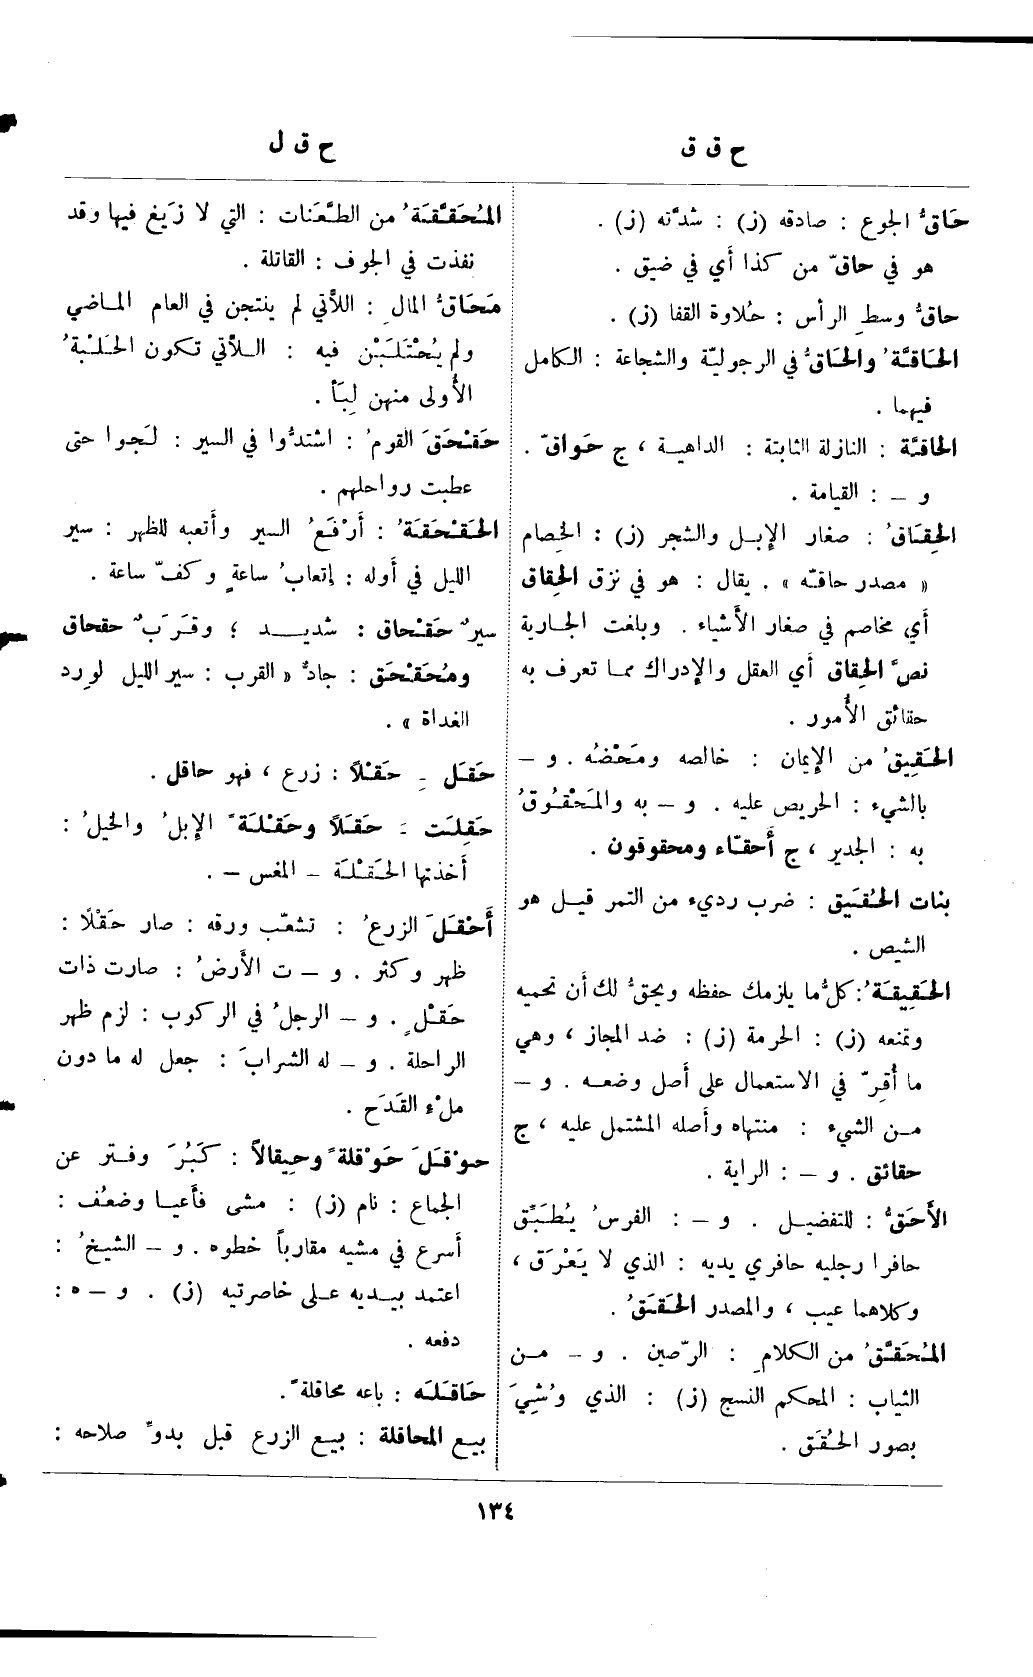 ح ق ق
ح ق ل
حَاقُّ الجوع : صادقه (ز) : شدَّته (ز) .
هو في حاقّ من كذا أي في ضيق .
حاقُّ وسطِ الرأس : حُلاوة القفا (ز) .
الحَاقَّةُ والحَاقُّ في الرجوليّة والشجاعة : الكامل
فيهما .
الحَاقَّة : النازلة الثابتة : الداهيـة ، ج حَواقّ .
و – : القيامة .
الحِقَاقُ : صغار الإبـل والشجر (ز) : الخِصام
« مصدر حاقـّه » . يقال : هو في نزق الحِقاق
أي مخاصم في صغار الأشياء . وبلغت الجـارية
نصَّ الحِقاق أي العقل والإدراك ممـا تعرف به
حقائق الأُمور .
الحَقِيقُ من الإيمان : خالصه ومَحْضُه . و –
بالشيء : الحريص عليه . و – به والمَحْقُوقُ
به : الجدير ، ج أَحقّاء ومحقوقون .
بنات الحُقَيق : ضرب رديء من التمر قيـل هو
الشيص .
الحَقِيقَةُ : كلُّ ما يلزمك حفظه ويحقُّ لك أن تحميه
وتمنعه (ز) : الحرمة (ز) : ضد المجاز ، وهي
ما أُقِرّ في الاستعمال على أصل وضعـه . و –
مـن الشيء : منتهاه وأصله المشتمل عليه ، ج
حقائق . و – : الراية .
الأَحَقُّ : للتفضيـل . و – : الفرسُ يُطَبِّق
حافرا رجليه حافري يديه : الذي لا يَعْرَق ،
وكلاهما عيب ، والمصدر الحَقَقُ .
المُحَقَّق من الكلامِ : الرّصين . و – مـن
الثياب : المحكم النسج (ز) : الذي وُشِّيَ
بصور الحُقَق .
المُحَقَّقَةُ من الطَّعَنات : التي لا زَيغ فيها وقد
نفذت في الجوف : القاتلة .
مَحَاقُّ المالِ : اللّأتي لم ينتجن في العام المـاضي
ولم يُحْتَلَبْن فيه : الـلّأتي تكون الحَلْبةُ
الأُولى منهن لِبَأً .
حَقْحَقَ القومُ : اشتدُّوا في السير : لَجوا حتى
عطبت رواحلهم .
الحَقْحَقَةُ : أَرْفَعُ السير وأتعبه للظهر : سير
الليل في أوله : إتعابُ ساعةٍ وكفّ ساعة .
سيرٌ حَقْحاق : شديـد ؛ وقَرَبٌ حقحاق
ومُحَقْحَق : جادٌّ « القرب : سير الليل لورد
الغداة » .
حَقَل ِ حَقْلاً : زرع ، فهو حاقل .
حَقِلَت َ حَقَلاً وحَقْلَةً الإبلُ والخيلُ :
أخذتها الحَقْلَة – المغس – .
أَحْقَلَ الزرعُ : تشعّب ورقه : صار حَقْلًا :
ظهر وكثر . و – ت الأَرضُ : صارت ذات
حَقْلٍ . و – الرجلُ في الركوب : لزم ظهر
الراحلة . و – له الشرابَ : جعل له ما دون
ملْء القَدَح .
حوْقَلَ حَوْقلةً وحِيقالاً : كَبُرَ وفتر عن
الجماع : نام (ز) : مشى فأعيـا وضعُف :
أسرع في مشيه مقارباً خطوه . و – الشيخُ :
اعتمد بيـديه عـلى خاصرتيه (ز) . و – ه :
دفعه .
حَاقَلَه : باعه محاقلةً .
بيـع المحاقلة : بيـع الزرع قبل بدوِّ صلاحه :
١٣٤